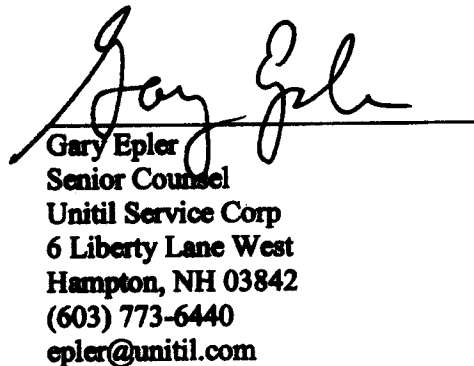 Gary Epler
Gary Epler
Senior Counsel
Unitil Service Corp
6 Liberty Lane West
Hampton, NH 03842
(603) 773-6440
epler@unitil.com